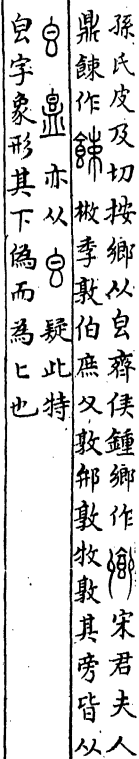 孫氏皮及切按鄉从皀齊侯鍾鄉作宋君夫人
鼎餗作㭘季敦伯庶父敦邢敦牧敦其旁皆从
亦从疑此特
皀字象形其下偽而為匕也